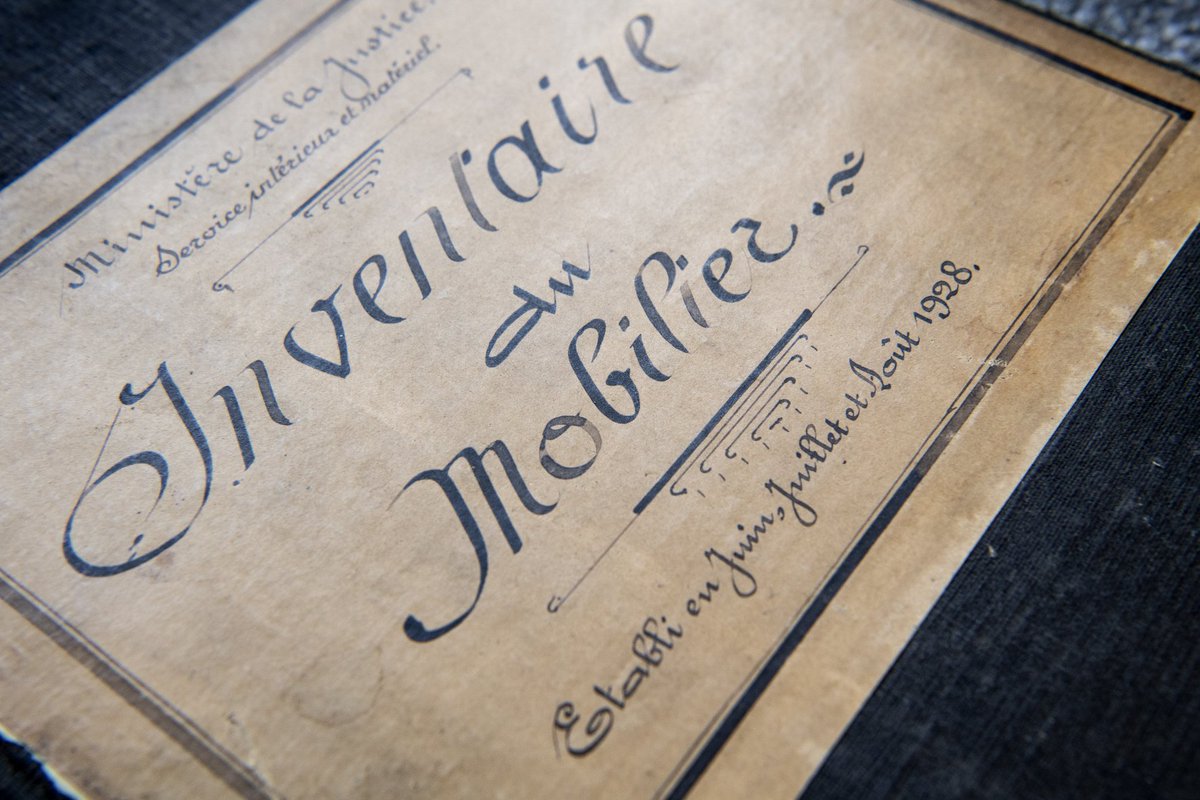 Ministère de la Justice.
Service intérieur et matériel.
Inventaire
du
Mobilier.
Etabli en Juin, Juillet et Août 1928.